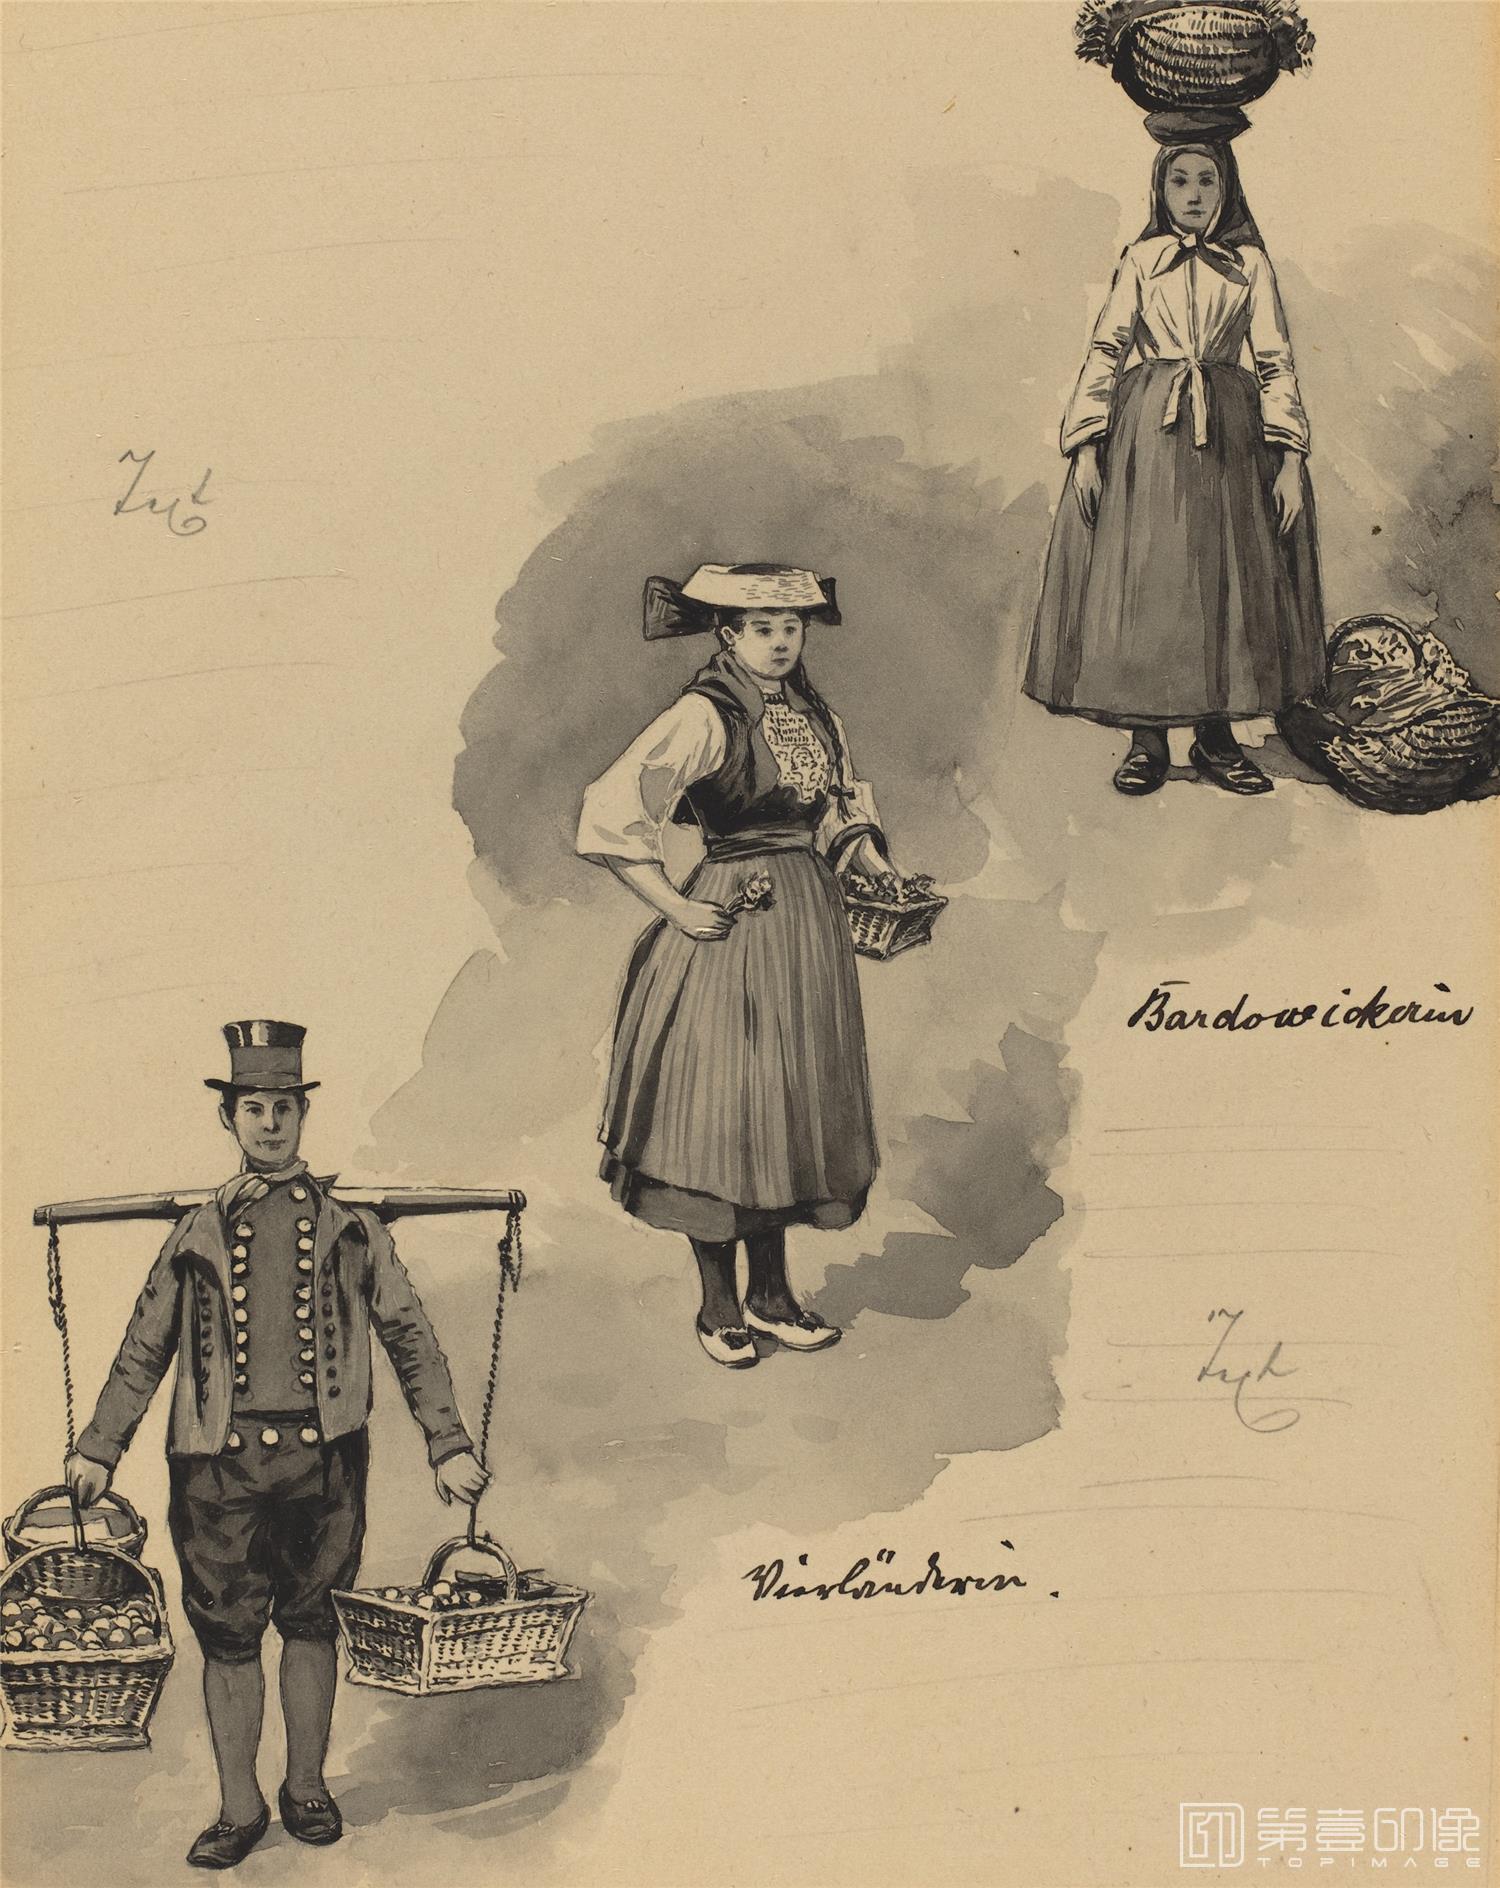 Text
Bardowickerin
Text
Vierländerin.
第壹印像
TOPIMAGE